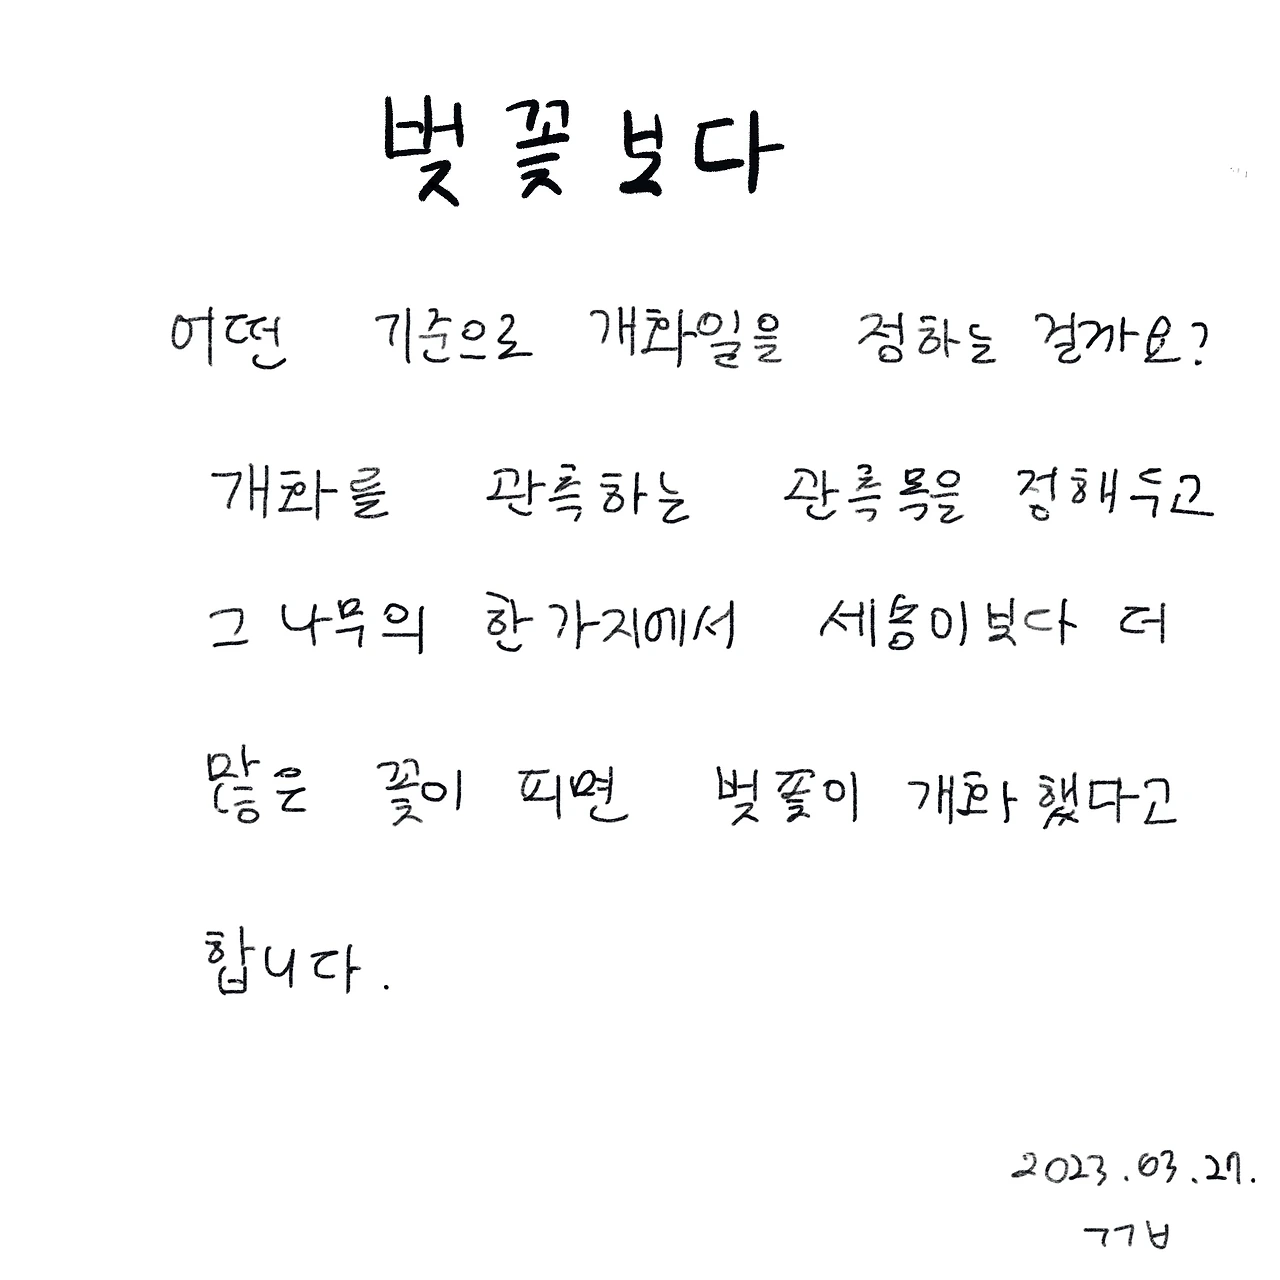 벚꽃보다
어떤 기준으로 개화일을 정하는 걸까요?
개화를 관측하는 관측목을 정해두고
그 나무의 한 가지에서 세송이보다 더
많은 꽃이 피면 벚꽃이 개화했다고
합니다.
2023.03.27.
ㄱㄱㅂ